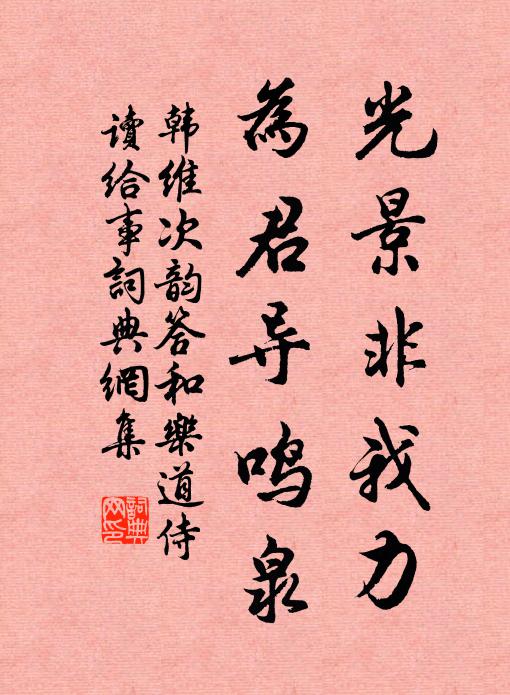 光景非我力
為君导鸣泉
韩維次韵答和樂道侍
读给事詞典網集
詞典网印